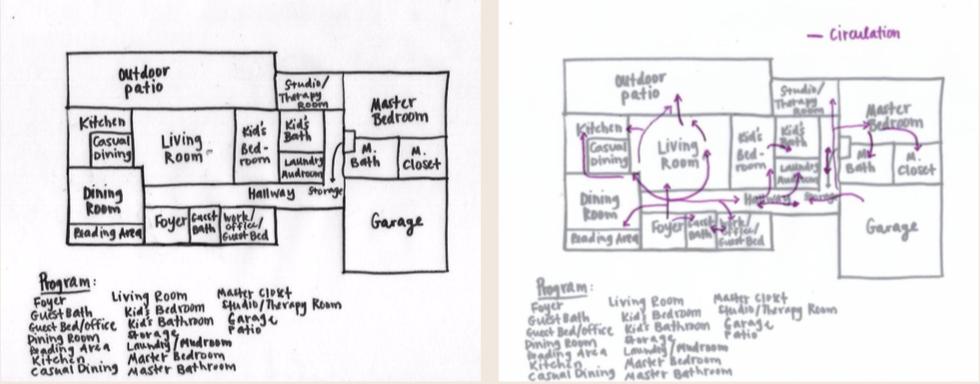 outdoor
patio
Studio/
Therapy
Room
Master
Bedroom
Kitchen
Casual
Dining
Living
Room
Kid's
Bed-
room
Kid's
Bath
Laundry
Mudroom
M.
Bath
M.
Closet
Dining
Room
Hallway
Storage
Foyer
Guest
Bath
work/
office/
Guest Bed
Garage
Reading Area
Program:
Foyer
Guest Bath
Guest Bed/office
Dining Room
Reading Area
Kitchen
Casual Dining
Living Room
Kid's Bedroom
Kid's Bathroom
Storage
Laundry/Mudroom
Master Bedroom
Master Bathroom
Master Closet
Studio/Therapy Room
Garage
Patio
— Circulation
outdoor
patio
Studio/
Therapy
Room
Master
Bedroom
Kitchen
Casual
Dining
Living
Room
Kid's
Bed-
room
Kid's
Bath
Laundry
Mudroom
M.
Bath
M.
Closet
Dining
Room
Hallway
Storage
Foyer
Guest
Bath
work/
office/
Guest Bed
Garage
Reading Area
Program:
Foyer
Guest Bath
Guest Bed/office
Dining Room
Reading Area
Kitchen
Casual Dining
Living Room
Kid's Bedroom
Kid's Bathroom
Storage
Laundry/Mudroom
Master Bedroom
Master Bathroom
Master Closet
Studio/Therapy Room
Garage
Patio